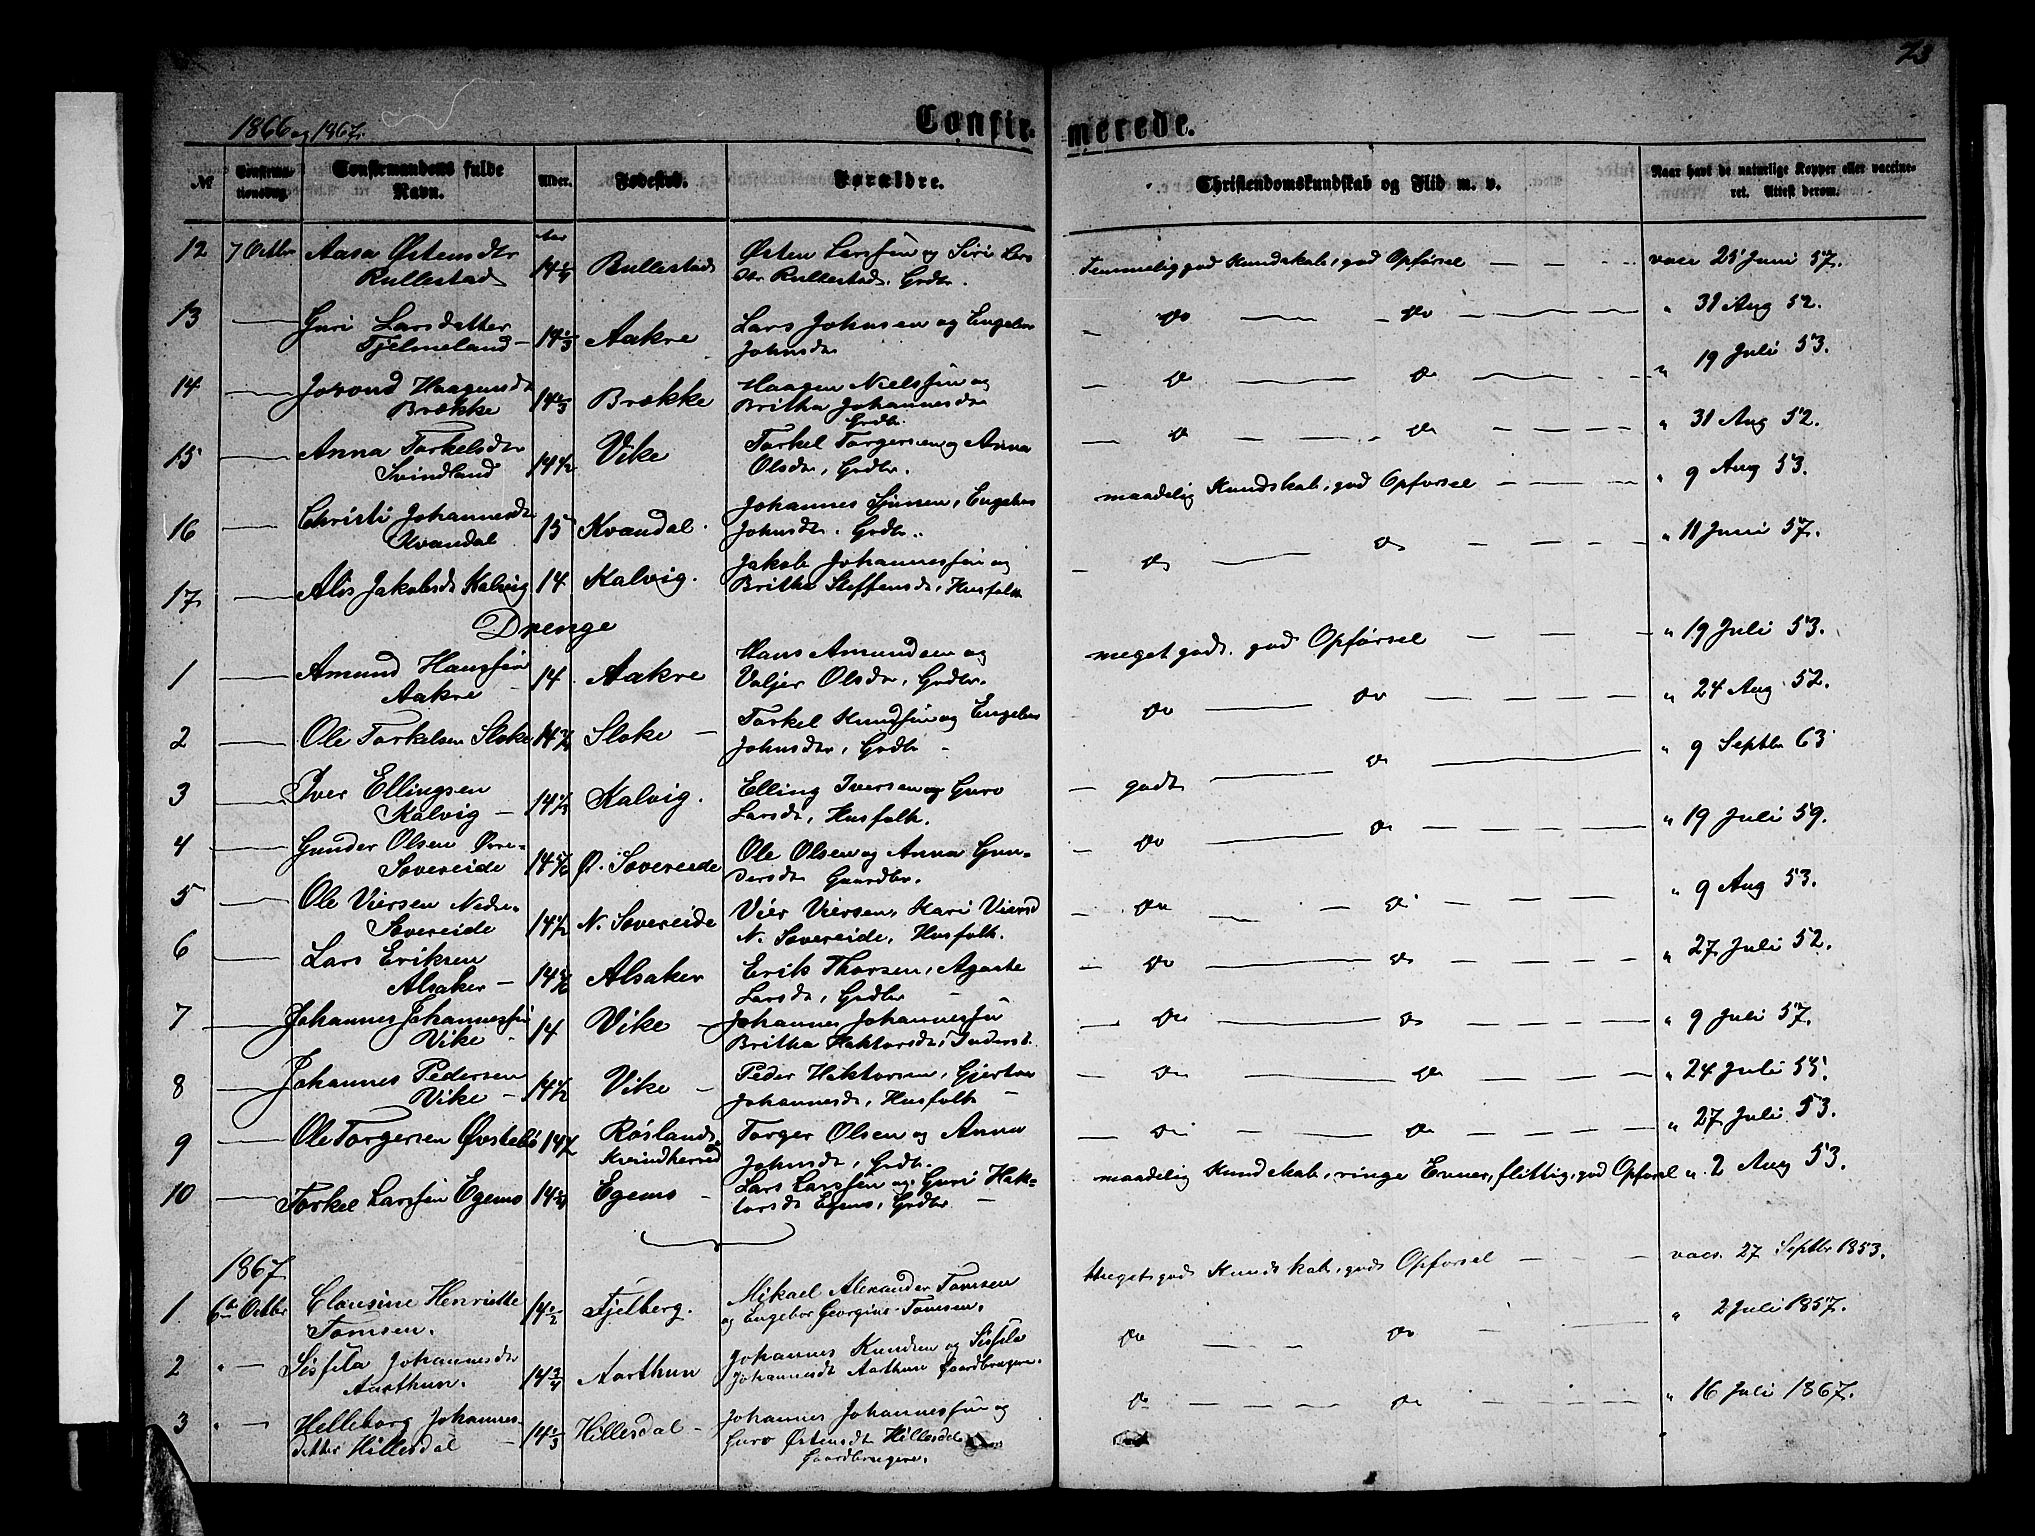 73
1866 og 1867.
Confir- merede.
No Confirma- tionsdag. Confirmandens fulde Navn. Alder. Fødested. Forældre. Christendomskundskab og Flid m. v. Naar havt de naturlige Kopper eller vaccine- ret. Attest derom.
12 7 Octbr Aasa Østensdtr Rullestad 14 1/4 Rullestad Østen Larssen og Siri Lars dtr Rullestad. Grdbr. Temmelig god Kundskab, god Opførsel vacc 25 Juni 57.
13 Guri Larsdatter Tjelmeland 14 1/3 Aakre Lars Johnsen og Engebor Johnsdtr do do " 31 Aug 52.
14 Jorond Haagensdtr Brække 14 1/3 Brække Haagen Nielssen og Britha Johannesdtr Grdbr. do do " 19 Juli 53.
15 Anna Torkelsdtr Svindland 14 1/2 Vike Torkel Torgersen og Anna Olsdtr, Grdbr. do do " 31 Aug 52.
16 Christi Johannesdtr Kvandal 15 Kvandal. Johannes Simsen, Engebor Johnsdtr. Grdbr. maadelig Kundskab, god Opførsel " 9 Aug 53.
17 Alis Jakobsdtr Kalvig 14 Kalvig. Jakob Johannessen og Britha Steffensdtr, Husfolk do do " 11 Juni 57.
Drenge
1 Amund Hanssen Aakre 14 Aakre Hans Amundsen og Valjer Olsdtr, Grdbr. meget god. god Opførsel " 19 Juli 53.
2 Ole Torkelsen Sloke 14 Sloke Torkel Knudssen og Engebor Johnsdtr, Grdbr do do " 24 Aug 52.
3 Iver Ellingsen Kalvig 14 1/2 Kalvig. Elling Iversen og Guro Larsdtr, Husfolk. godt do " 9 Septbr 63
4 Gunder Olsen Øvre- Sovereide 14 5/6 Ø. Sovereide Ole Olsen og Anna Gun- dersdtr Gaardbr. do do " 19 Juli 59.
5 Ole Viersen Nedre- Sovereide 14 1/2 N. Sovereide Vier Viersen, Kari Viersd N. Sovereide, Husfolk. do do " 9 Aug 53.
6 Lars Eriksen Alsaker 14 Alsaker Erik Thorsen, Agaste Larsdtr, Grdbr do do " 27 Juli 52.
7 Johannes Johannessen Vike 14 Vike Johannes Johannessen Britha Haktorsdtr, Inderst. do do " 9 Juli 57.
8 Johannes Pedersen Vike 14 1/2 Vike Peder Haktorsen, Gjertru Johannesdtr, Husfolk do do " 24 Juli 55.
9 Ole Torgersen Østebø 14 1/2 Røsland, Kvindherred Torger Olsen og Anna Johnsdtr, Grdbr. do do " 27 Juli 53.
10 Torkel Larssen Egemo 14 Egemo Lars Larssen og Guri Hak- torsdtr Egemo, Grdbr maadelig Kundskab, ringe Evner, flittig, god Opførsel " 2 Aug 53.
1867
1. 6te Octbr Clausine Henriette Tomsen. 14 1/2 Fjelberg. Mikael Alexander Tomsen og Engebor Georgine Tomsen. Meget god Kundskab, god Opførsel vacc. 27 Septbr 1853.
2 " Sisfela Johannesdtr Aarthun. 14 3/4 Aarthun Johannes Knudsen og Sisfela Johannesdtr Aarthun Gaardbrugere. do do " 2 Juli 1857.
3 " Helleborg Johannes- datter Hillesdal 14 1/3 Hillesdal Johannes Johannessen og Guro Østensdtr Hillesdal Gaardbrugere. do do " 16 Juli 1867.